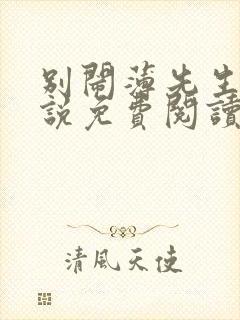 別鬧薄先生
說免費閱讀
清風天使